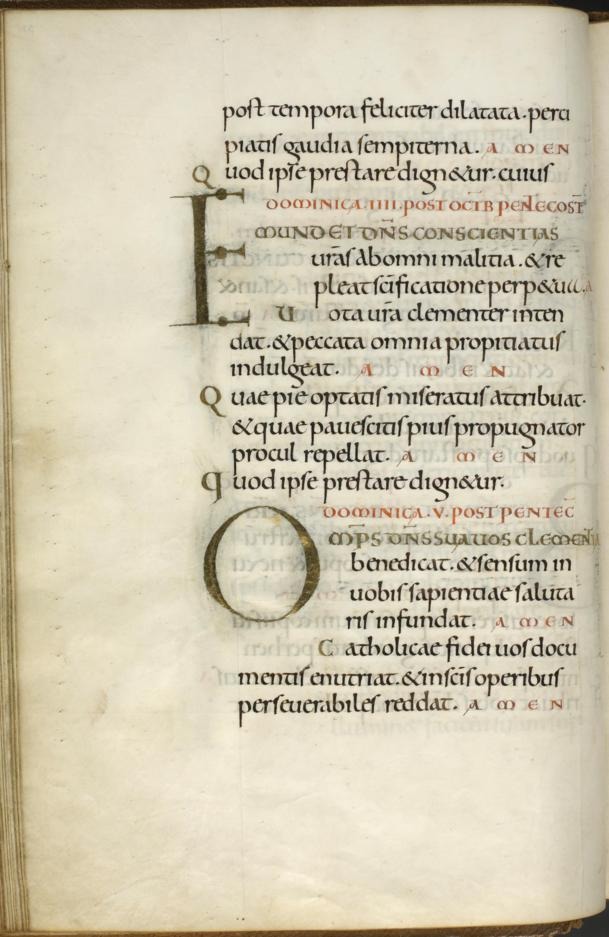 post tempora feliciter dilatata. perci
piatis gaudia sempiterna. A M EN
Quod ipse prestare dign&ur. cuius
DOMINICA. IIII. POST OCTB PENTECOST
EMUNDET DN̄S CONSCIENTIAS
ur̄as ab omni malitia. & re
pleat sc̄ificatione perp&ua. A
Uota ur̄a clementer inten
dat. & peccata omnia propitiatus
indulgeat. A M E N
Quae pie optatis miseratus attribuat.
& quae pauescitis pius propugnator
procul repellat. A M E N
quod ipse prestare dign&ur.
DOMINICA. V. POST PENTEC̄
OMP̄S DN̄S SUA UOS CLEMENTIA
benedicat. & sensum in
uobis sapientiae saluta
ris infundat. A M E N
Catholicae fidei uos docu
mentis enutriat. & in sc̄is operibus
perseuerabiles reddat. A M E N